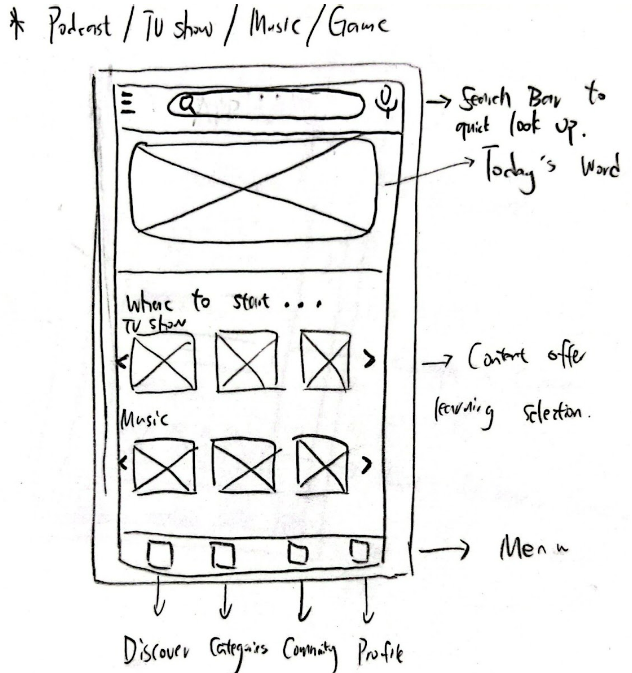 * Podcast / TV show / Music / Game
→ Search Bar to
quick look up.
→ Today's Word
Where to start ...
TV show
→ Content offer
learning selection.
Music
→ Menu
Discover Categories Community Profile